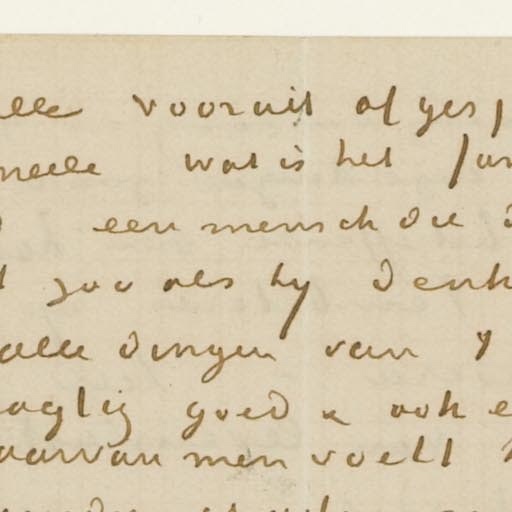 elle vooruit afges
neele wat is het
een mensch die
zooals hy denk
alle dingen van
goed & ook
aarvan men voelt